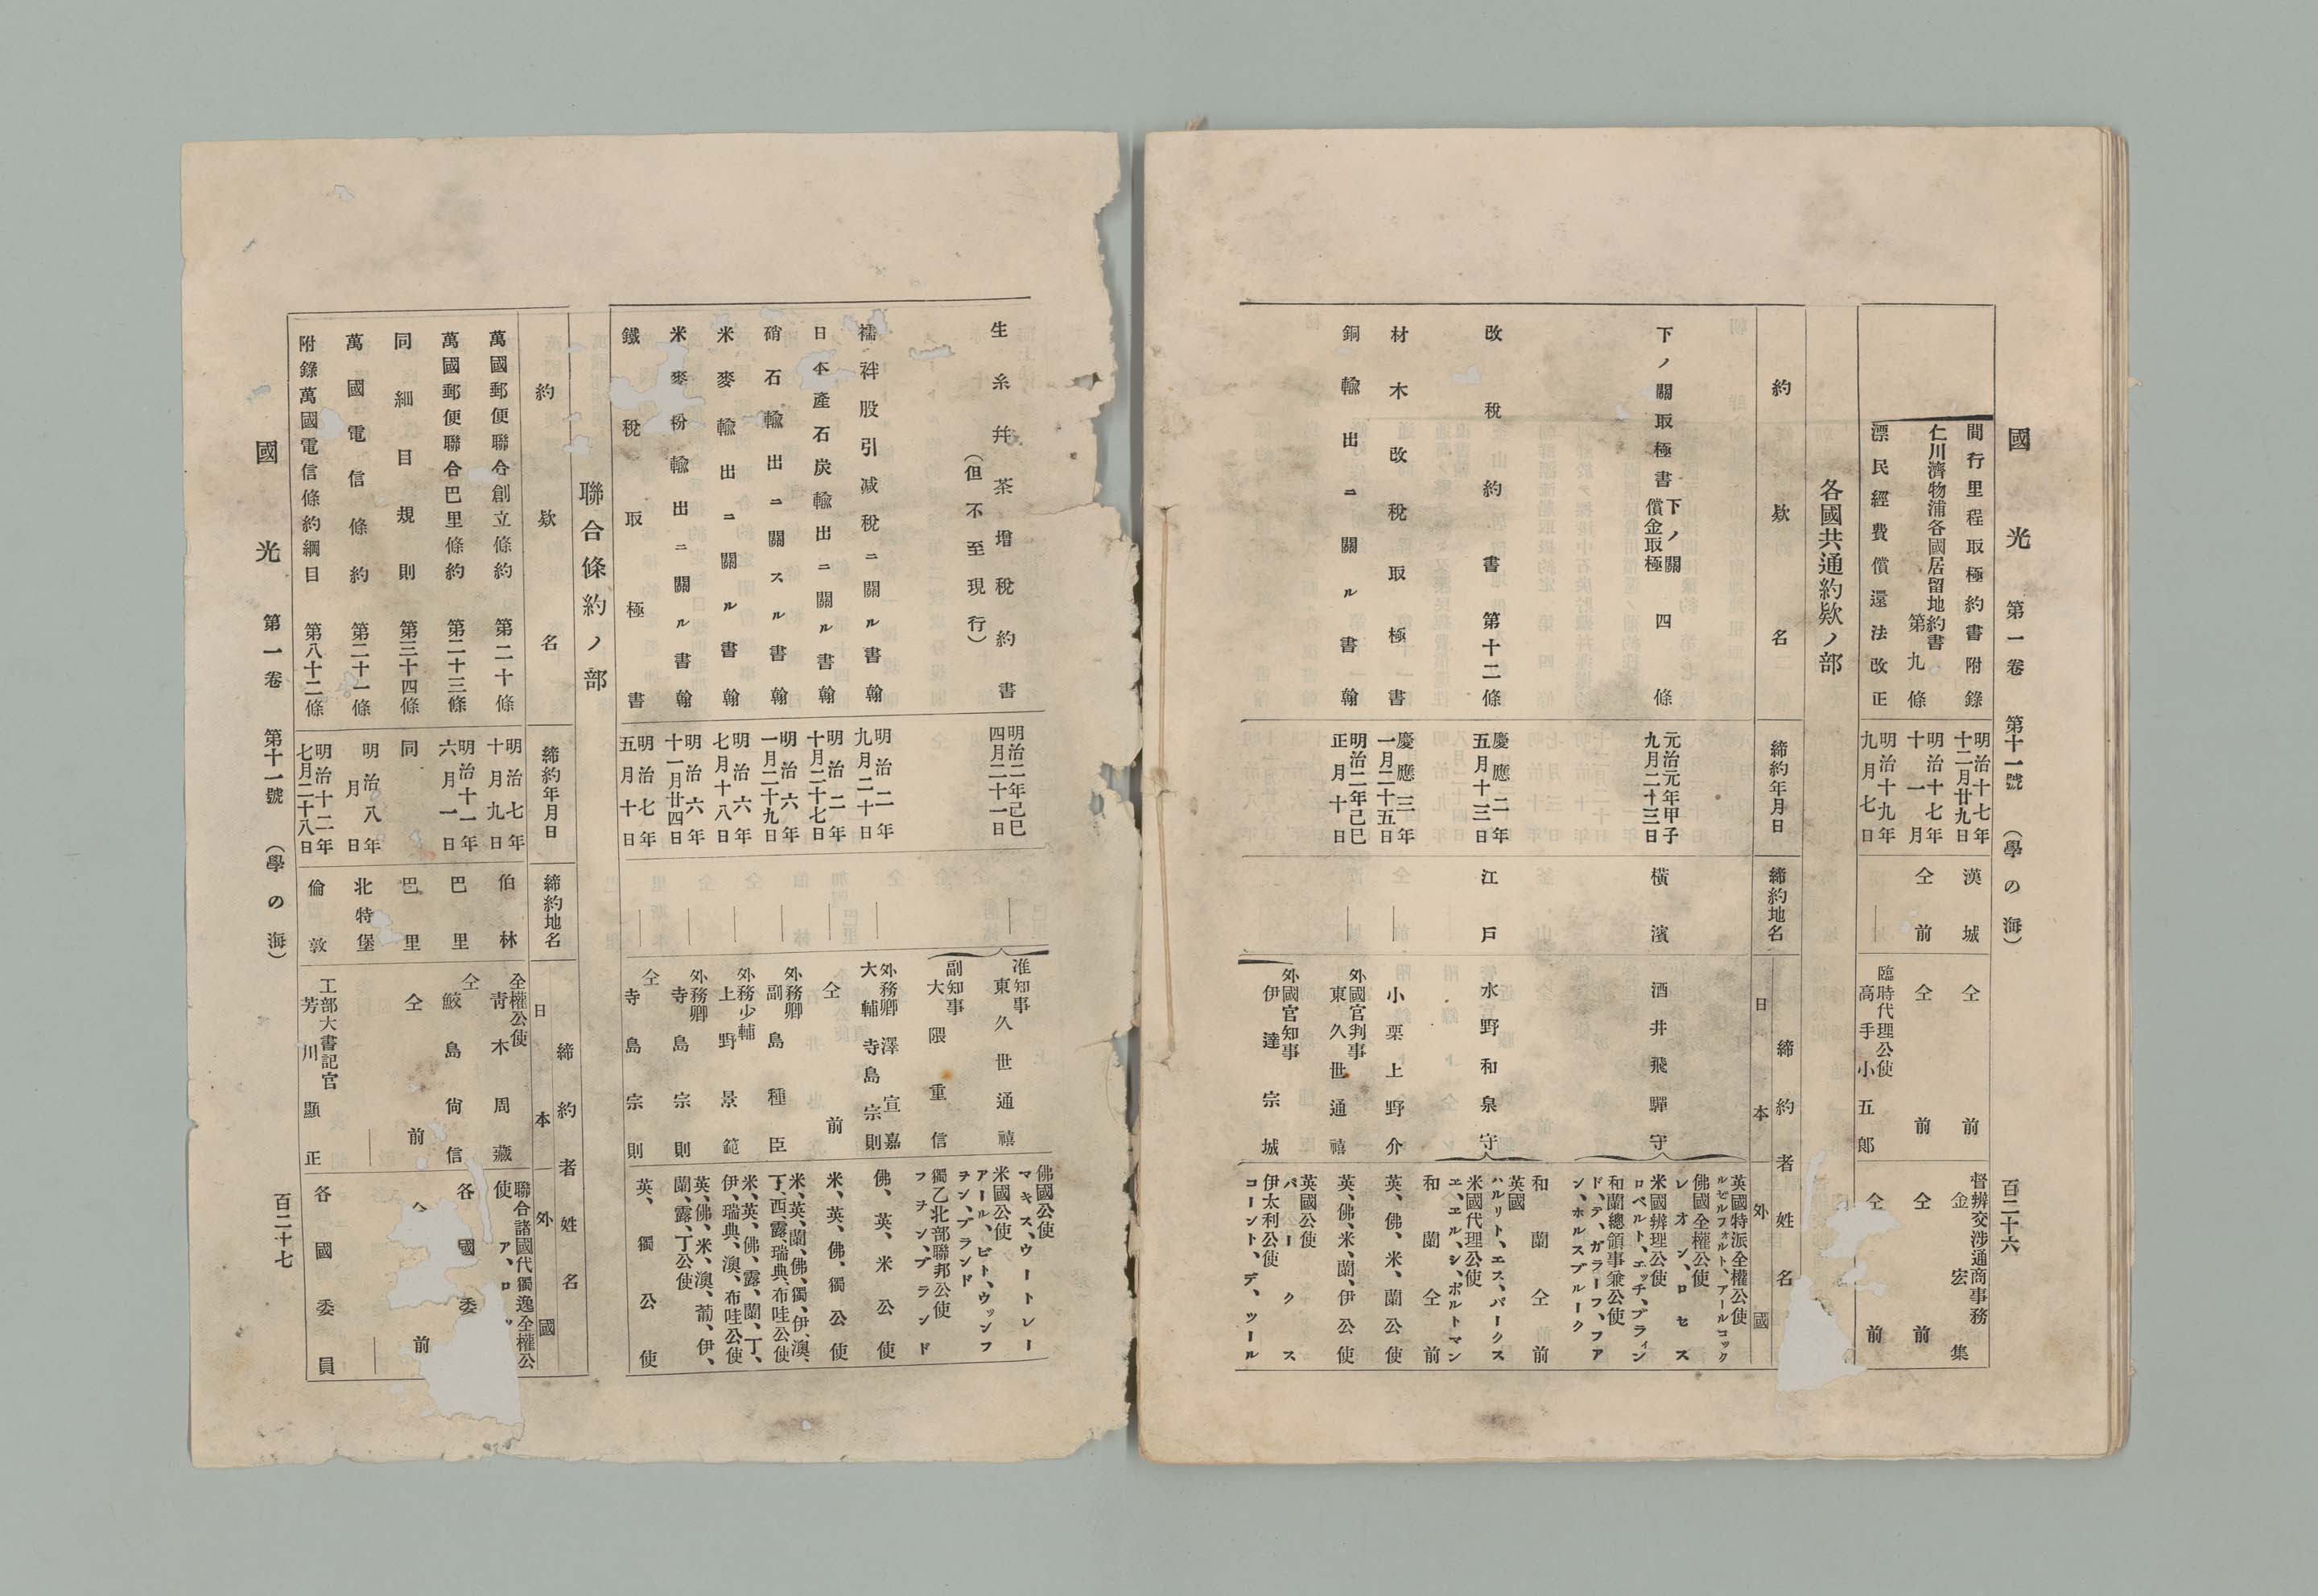 國光 第一卷 第十一號 (學の海) 百二十六
間行里程取極約書附錄
明治十七年
十二月廿九日
漢城
仝前
督辨交涉通商事務
金宏集
仁川濟物浦各國居留地約書
第九條
明治十七年
十一月
仝前
仝前
仝前
漂民經費償還法改正
明治十九年
九月七日
臨時代理公使
高手小五郎
仝前
各國共通約欵ノ部
約欵名
締約年月日
締約地名
締約者姓名
日本
外國
下ノ關取極書
下ノ關
償金取極
四條
元治元年甲子
九月二十三日
橫濱
酒井飛驒守
英國特派全權公使
ルゼルフォルト、アールコック
佛國全權公使
レオン、ロセス
米國辨理公使
ロベルト、エッチ、プライン
和蘭總領事兼公使
ド、テ、ガラーフ、ファ
ン、ホルスブルーク
改稅約書
第十二條
慶應二年
五月十三日
江戶
水野和泉守
和蘭仝前
英國
ハルリト、エス、パークス
米國代理公使
エ、エル、シ、ポルトマン
和蘭仝前
材木改稅取極書
慶應三年
一月二十五日
小栗上野介
英、佛、米、蘭公使
銅輸出ニ關ル書翰
明治二年己巳
正月十日
外國官判事
東久世通禧
英、佛、米、蘭、伊公使
外國官知事
伊達宗城
英國公使
パークス
伊太利公使
コーント、デ、ツール
生糸幷茶增稅約書
(但不至現行)
明治二年己巳
四月二十一日
准知事
東久世通禧
副知事
大隈重信
佛國公使
マキス、ウートレー
米國公使
アール、ビト、ウッンフ
ヲン、ブランド
獨乙北部聯邦公使
フヲン、ブランド
襦袢股引減稅ニ關ル書翰
明治二年
九月二十日
外務卿澤宣嘉
大輔寺島宗則
佛、英、米公使
日本產石炭輸出ニ關ル書翰
明治二年
十月二十七日
仝前
米、英、佛、獨公使
硝石輸出ニ關スル書翰
明治六年
一月二十九日
外務卿
副島種臣
米、英、蘭、佛、獨、伊、澳、
丁、西、露、瑞典、布哇公使
米麥輸出ニ關ル書翰
明治六年
七月十八日
外務少輔
上野景範
米、英、佛、露、蘭、丁、
伊、瑞典、澳、布哇公使
米麥粉輸出ニ關ル書翰
明治六年
十一月廿四日
外務卿
寺島宗則
英、佛、米、澳、葡、伊、
蘭、露、丁公使
鐵稅取極書
明治七年
五月十日
仝
寺島宗則
英、獨公使
聯合條約ノ部
約欵名
締約年月日
締約地名
締約者姓名
日本
外國
萬國郵便聯合創立條約
第二十條
明治七年
十月九日
伯林
全權公使
青木周藏
聯合諸國代獨逸全權公
使
萬國郵便聯合巴里條約
第二十三條
明治十一年
六月一日
巴里
仝
鮫島尙信
各國委
同細目規則
第三十四條
同
巴里
仝前
前
萬國電信條約
第二十一條
明治八年
月日
北特堡
附錄萬國電信條約綱目
第八十二條
明治十二年
七月二十八日
倫敦
工部大書記官
芳川顯正
各國委員
國光 第一卷 第十一號 (學の海) 百二十七